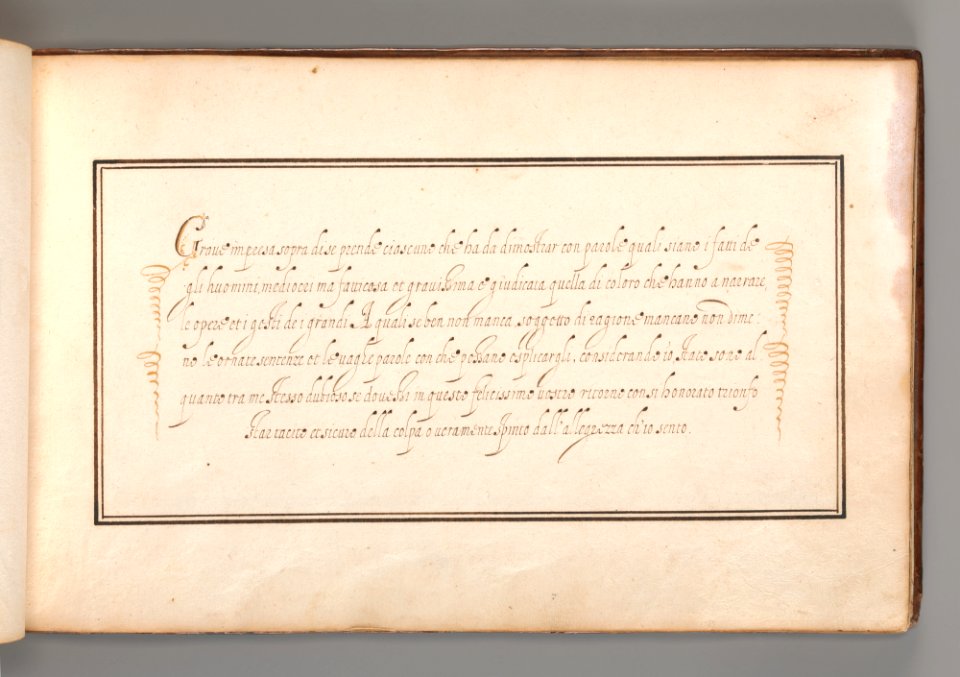 Grave impresa sopra di se prende ciascuno che ha da dimostrar con parole quali siano i fatti de
gli huomini, mediocri ma fatticosa et gravissima e' giudicata quella di coloro che hanno a narrare,
le opere et i gesti de i grandi. A quali se ben non manca, soggetto di ragione mancano non dime:
no le ornate sentenze et le vaghe parole con che possano esplicargli, considerando io stato sono al.
quanto tra me stesso dubioso se dovessi in questo felicissimo vostro ritorno con si honorato trionfo
star tacito et sicuro della colpa o veramente spinto dall'allegrezza ch'io sento.